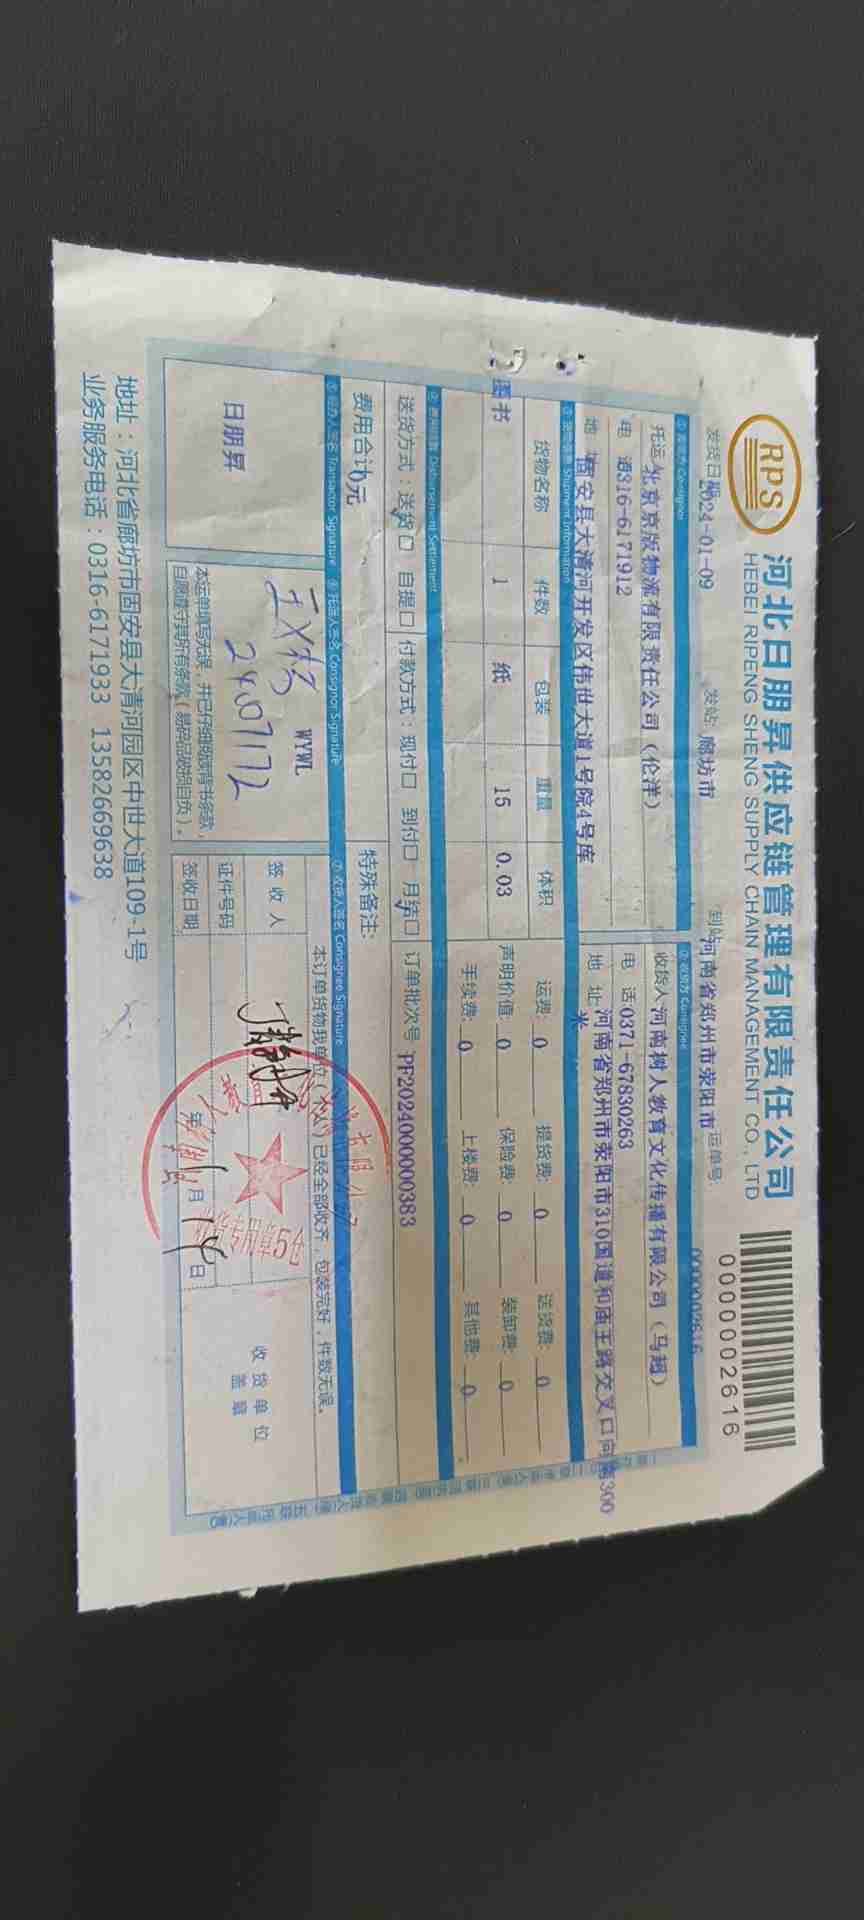 RPS
河北日朋昇供应链管理有限责任公司
HEBEI RIPENG SHENG SUPPLY CHAIN MANAGEMENT CO., LTD
0000002616
发货日期 2024-01-09 发站: 廊坊市 到站 河南省郑州市荥阳市 运单号: 0000002616
① 发货方 Consignor ② 收货方 Consignee
托运 北京京版物流有限责任公司(伦洋) 收货人 河南树人教育文化传播有限公司(马超)
电 0316-6171912 电 话:0371-67830263
地 固安县大清河开发区伟世大道1号院4号库 地 址: 河南省郑州市荥阳市310国道和庙王路交叉口向南300
米
Shipment Information
货物名称 件数 包装 重量 体积 运费: 0 提货费: 0 送货费: 0
图书 1 纸 15 0.03 声明价值: 0 保险费: 0 装卸费: 0
手续费: 0 上楼费: 0 其他费: 0
Disbursement Settlement
送货方式: 送货 自提 付款方式: 现付 到付 月结 订单批次号 PF2024000000383
费用合计 0元 特殊备注:
⑤ 经办人签名 Transactor Signature ⑥ 托运人签名 Consignor Signature ⑦ 收货人签名 Consignee Signature
日朋昇
WYWL
2407172
本订单货物我单位(个人)已经全部收齐,包装完好,件数无误。
签 收 人
证件号码
签收日期 年 1 月 14 日
收 货 单 位
盖 章
本运单填写无误,并已仔细阅读背书条款,
自愿遵守其所有条款(易碎品破损自负)。
收货专用章5
地址:河北省廊坊市固安县大清河园区中世大道109-1号
业务服务电话:0316-6171933 13582669638